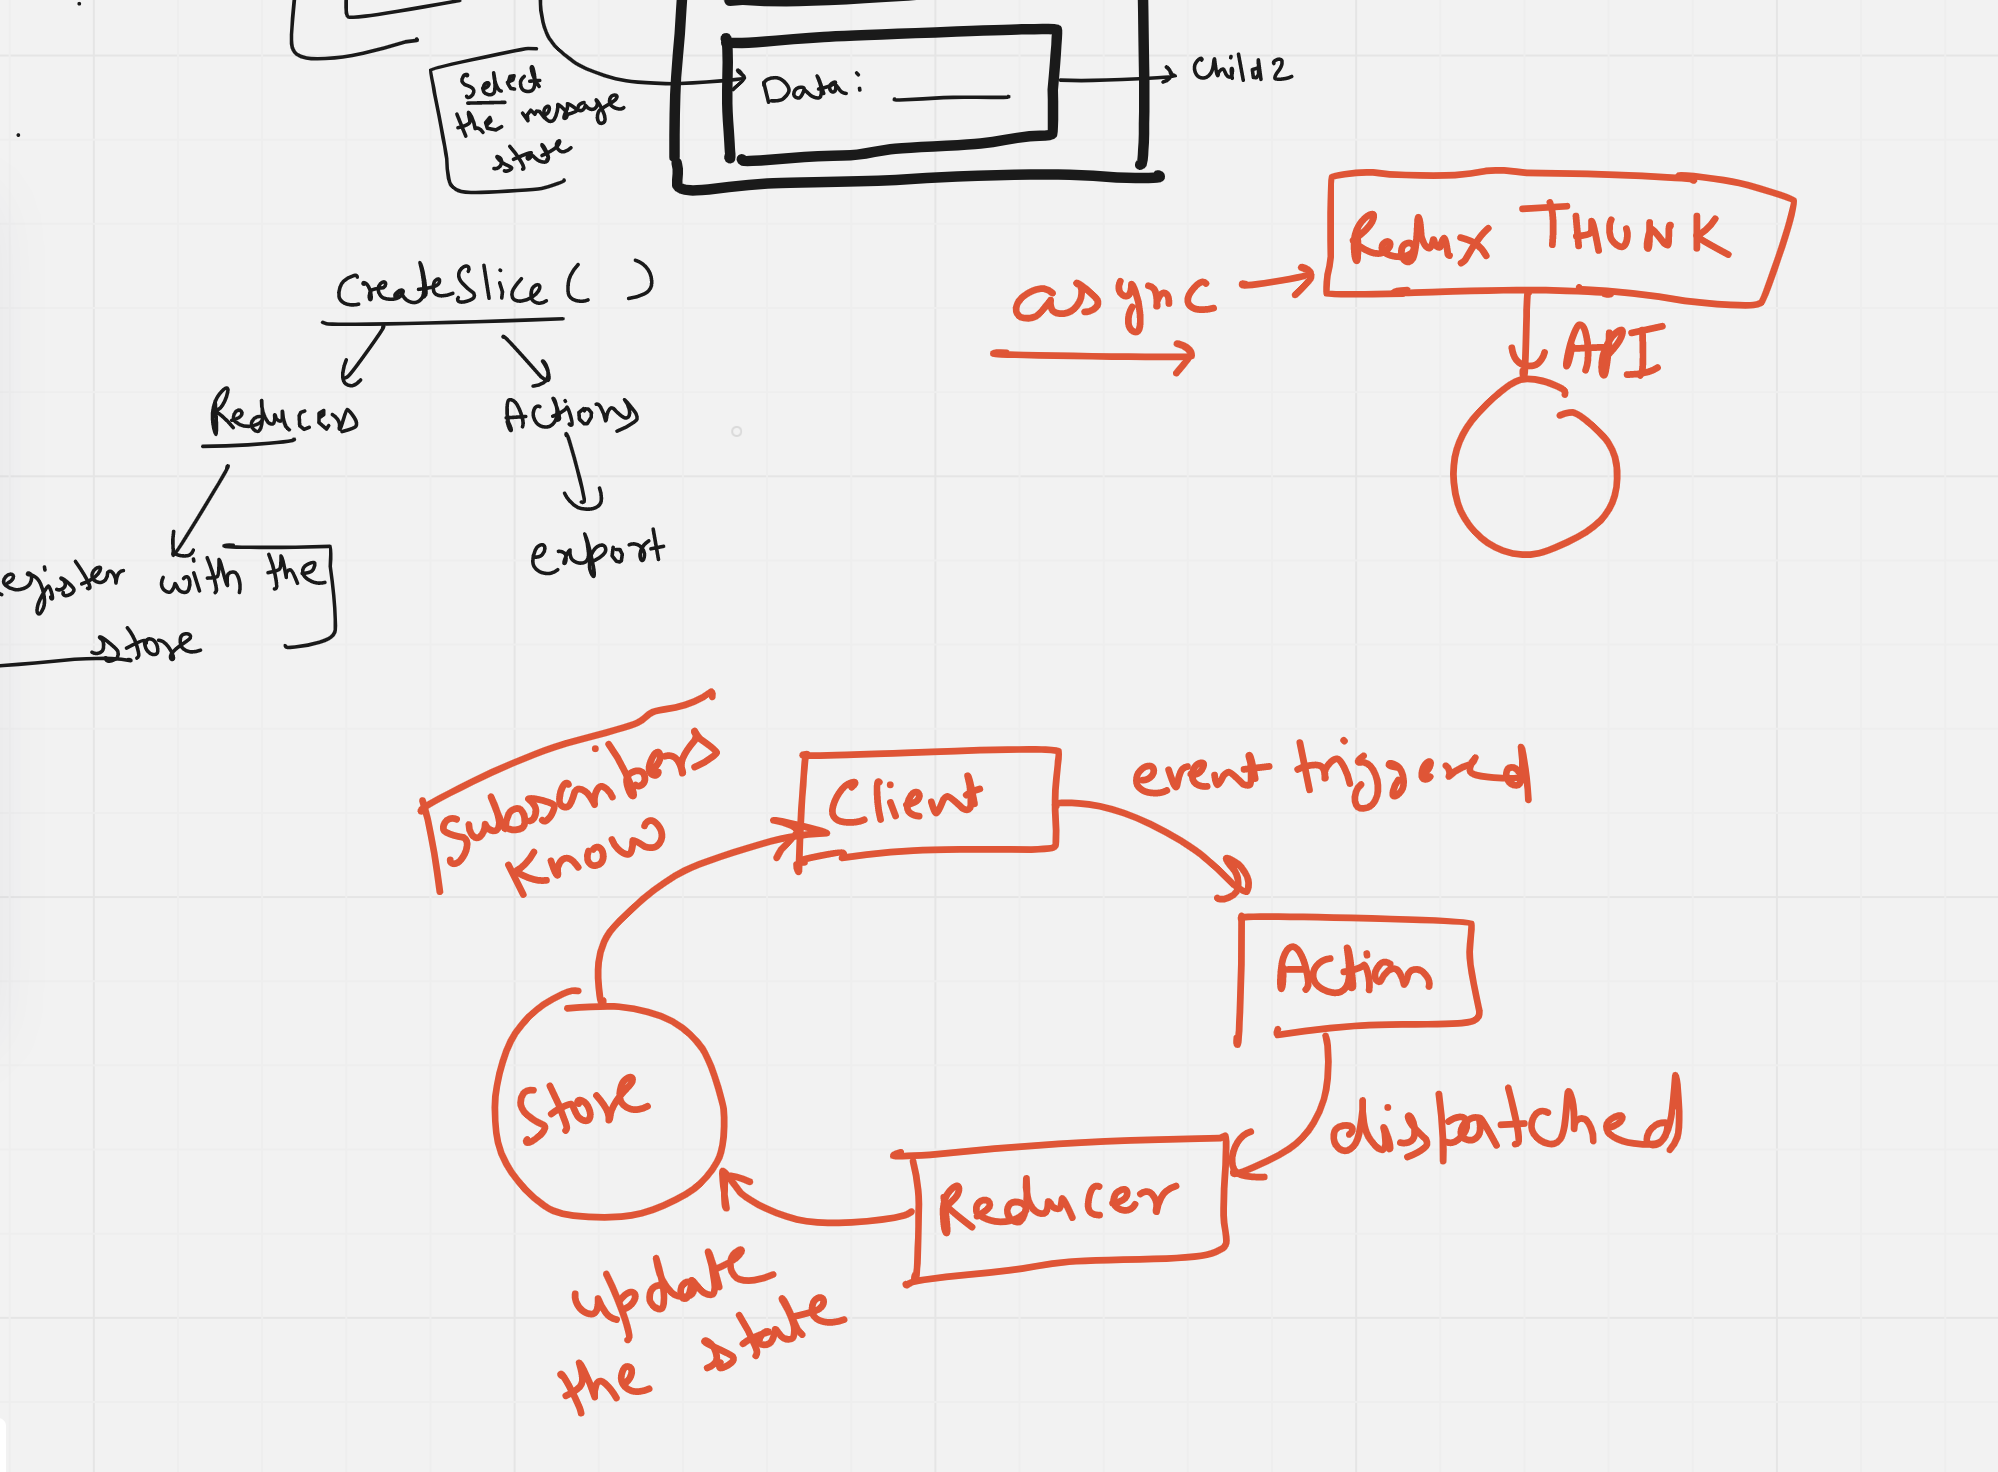 Select
the message
state
Data:
Child2
CreateSlice ( )
Reducers
Actions
export
with the
store
async
Redux THUNK
API
Subscribers
Know
Client
event triggered
Action
dispatched
Reducer
Store
update
the state